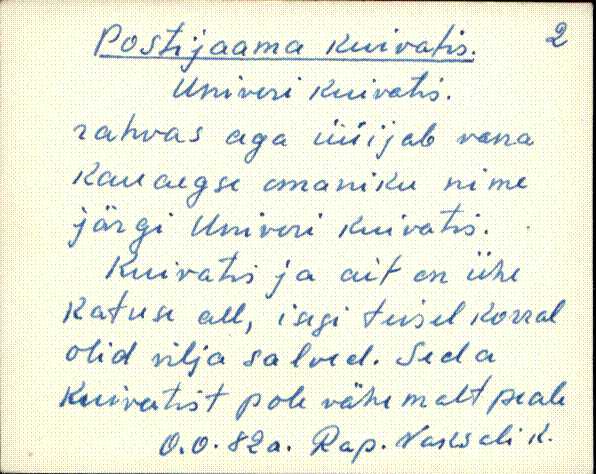 Postijaama kuivatis. 2
Univeri kuivatis.
rahvas aga üüijab vana
kauaegse omaniku nime
järgi Univeri kuivatis.
Kuivatis ja ait on ühe
katuse all, isegi teisel korral
olid vilja salved. Seda
kuivatist pole vähemalt peale
O.O. 82a. Rap. Vaksali k.